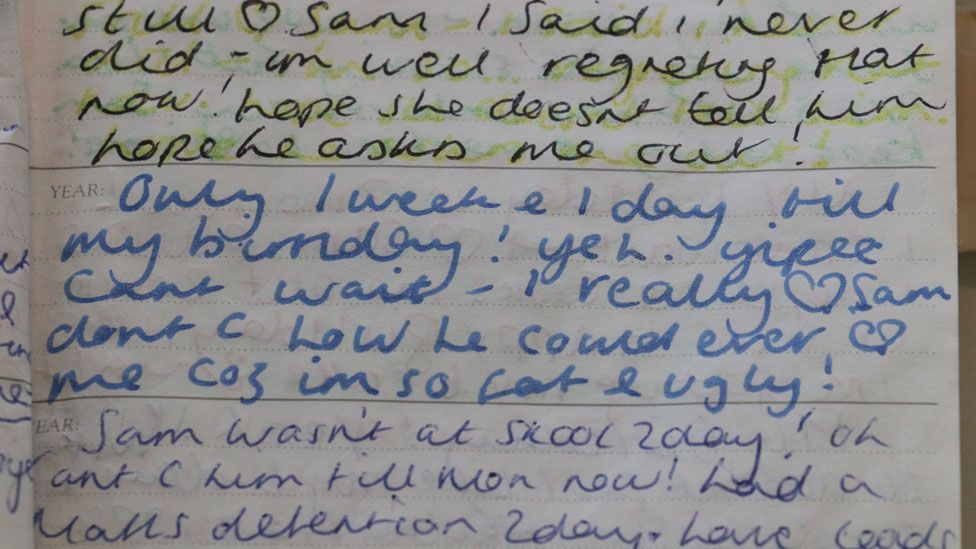 still ♡ Sam I said i never
did - im well regreting that
now! hope she doesnt tell him
hope he asks me out!
YEAR: Only 1 week & 1 day till
my birthday! yeh. yipee
Cant wait - I really ♡ Sam
dont C how he could ever ♡
me Coz im so fat & ugly!
EAR: Sam wasn't at skool 2day! oh
ant C him till Mon now! had a
Maths detention 2day. have loads